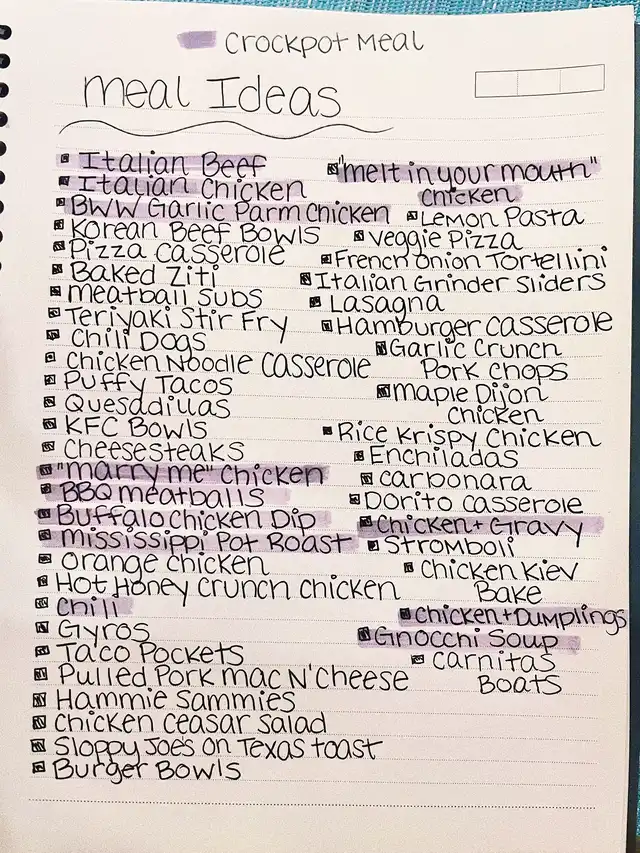 Crockpot Meal
Meal Ideas
Italian Beef
Italian Chicken
BWW Garlic Parm Chicken
Korean Beef Bowls
Pizza Casserole
Baked Ziti
Meatball Subs
Teriyaki Stir Fry
Chili Dogs
Chicken Noodle Casserole
Puffy Tacos
Quesadillas
KFC Bowls
Cheesesteaks
"marry me" Chicken
BBQ meatballs
Buffalo Chicken Dip
Mississippi Pot Roast
Orange Chicken
Hot Honey Crunch Chicken
Chili
Gyros
Taco Pockets
Pulled Pork Mac N'Cheese
Hammie Sammies
Chicken Ceasar Salad
Sloppy Joes on Texas toast
Burger Bowls
"melt in your mouth"
chicken
Lemon Pasta
Veggie Pizza
French Onion Tortellini
Italian Grinder Sliders
Lasagna
Hamburger Casserole
Garlic Crunch
Pork Chops
Maple Dijon
Chicken
Rice Krispy Chicken
Enchiladas
Carbonara
Dorito Casserole
Chicken + Gravy
Stromboli
Chicken Kiev
Bake
Chicken + Dumplings
Gnocchi Soup
Carnitas
Boats